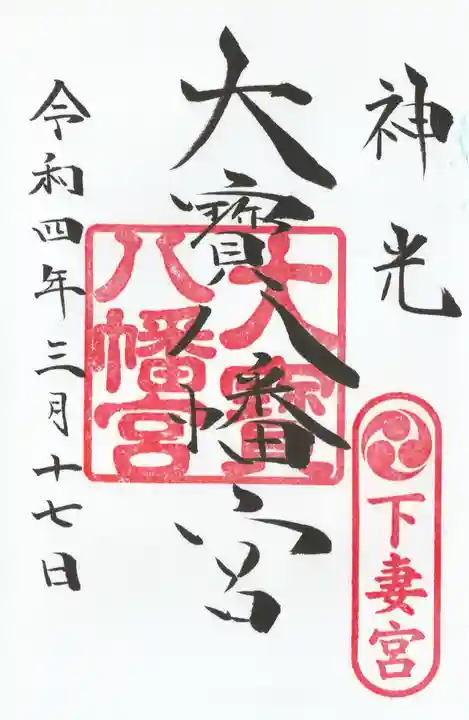 神光
下妻宮
大寳八幡宮
大寳
八幡宮
令和四年三月十七日